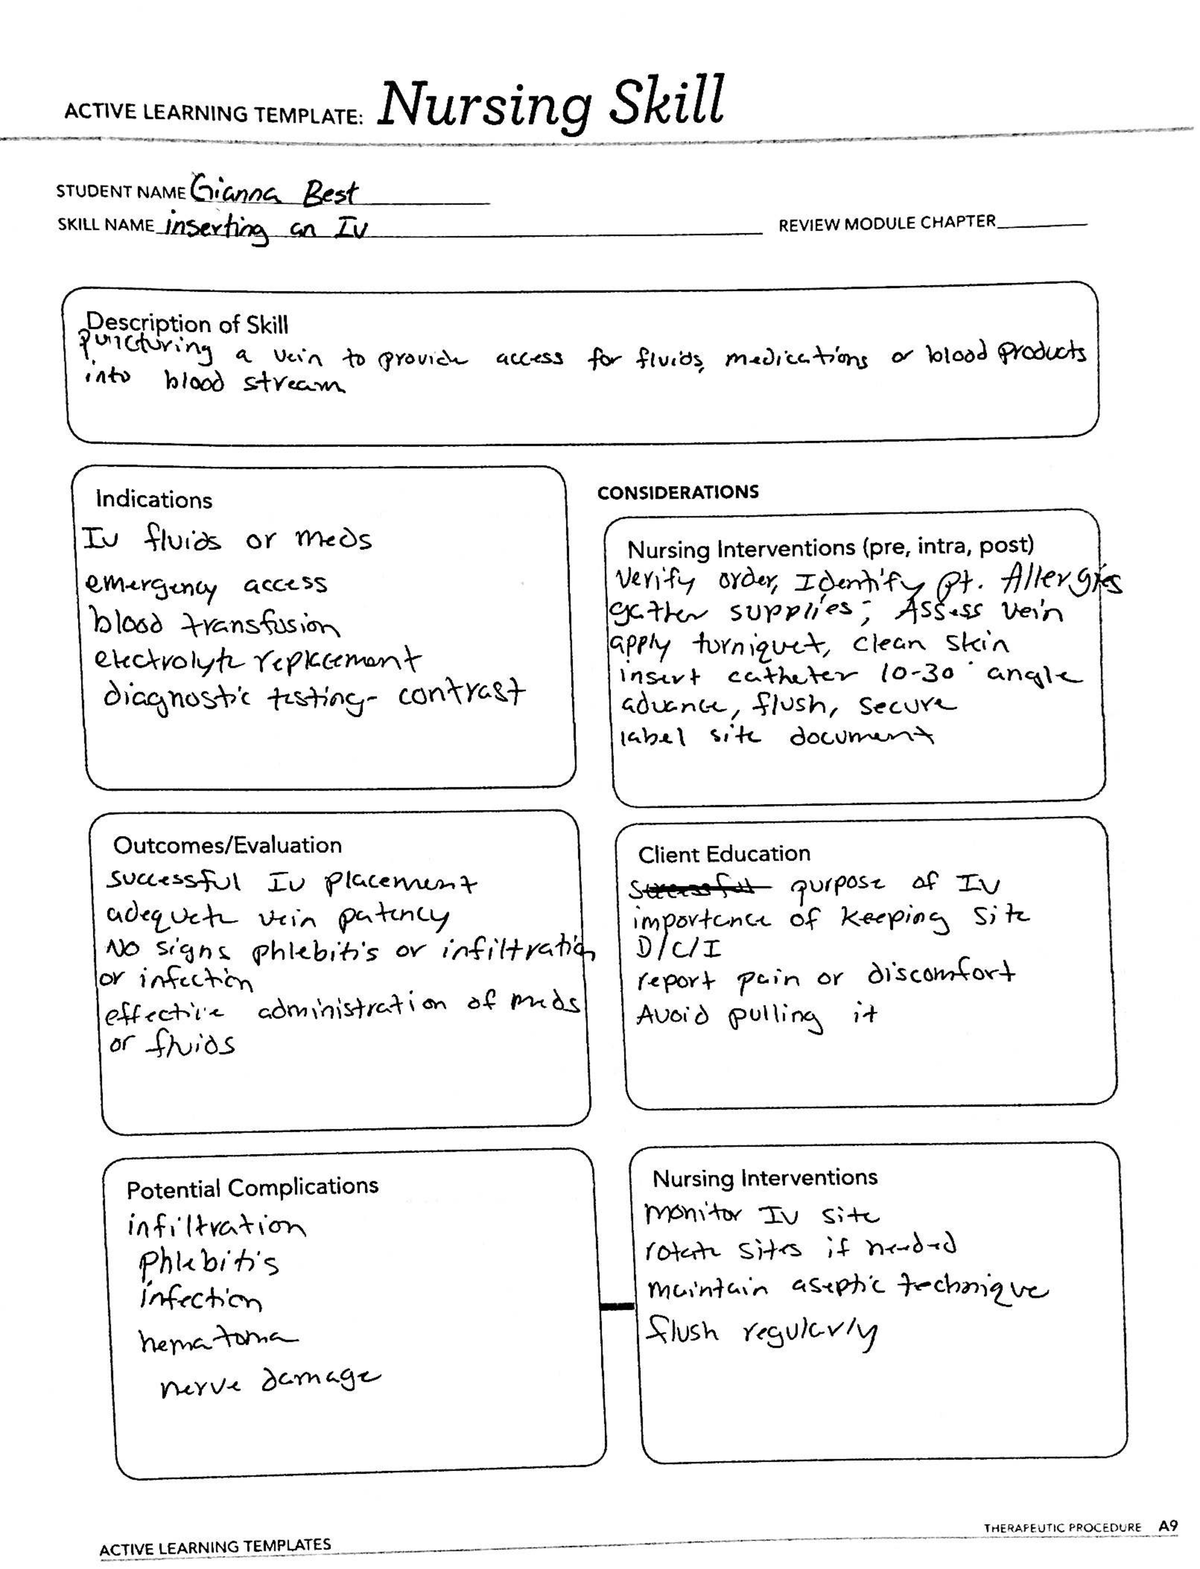 ACTIVE LEARNING TEMPLATE: Nursing Skill
STUDENT NAME Gianna Best
SKILL NAME inserting an IV
REVIEW MODULE CHAPTER
Description of Skill
puncturing a vein to provide access for fluids, medications or blood products
into blood stream
Indications
IV fluids or meds
emergency access
blood transfusion
electrolyte replacement
diagnostic testing- contrast
CONSIDERATIONS
Nursing Interventions (pre, intra, post)
Verify order, Identify pt. Allergies
gather supplies; Assess vein
apply turniquet, clean skin
insert catheter 10-30° angle
advance, flush, secure
label site document
Outcomes/Evaluation
successful IV placement
adequate vein patency
No signs phlebitis or infiltration
or infection
effective administration of meds
or fluids
Client Education
purpose of IV
importance of keeping site
D/C/I
report pain or discomfort
Avoid pulling it
Potential Complications
infiltration
Phlebitis
infection
hematoma
nerve damage
Nursing Interventions
monitor IV site
rotate sites if needed
maintain aseptic technique
flush regularly
ACTIVE LEARNING TEMPLATES
THERAPEUTIC PROCEDURE A9